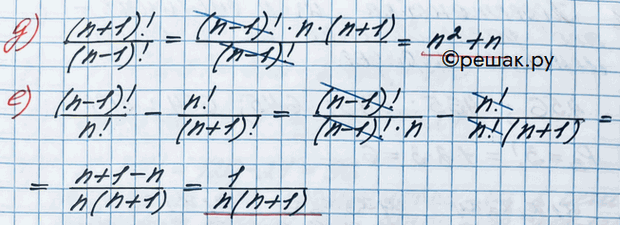 д) (n+1)!/(n-1)! = (n-1)!·n·(n+1)/(n-1)! = n²+n
©решак.ру
е) (n-1)!/n! - n!/(n+1)! = (n-1)!/(n-1)!·n - n!/n!(n+1) =
= n+1-n/n(n+1) = 1/n(n+1)